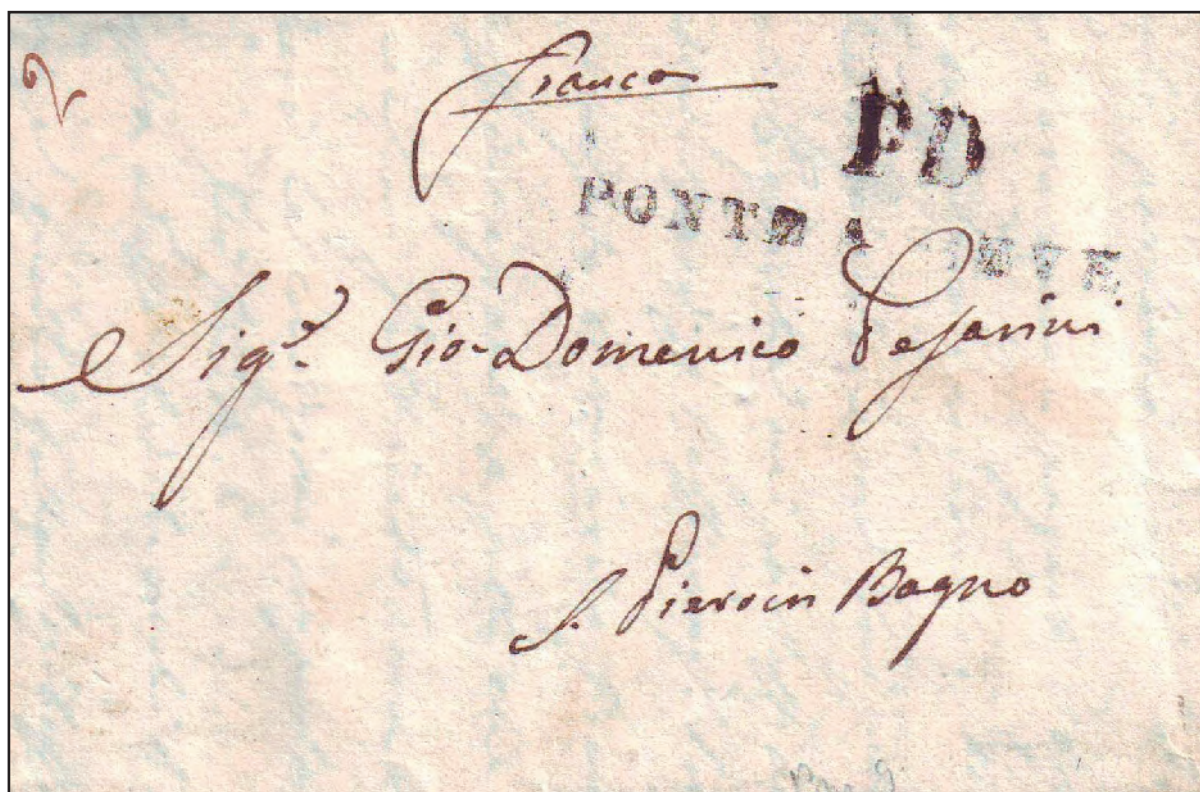 2
franco
PD
PONTE A SIEVE
Sig.r Gio. Domenico Pesarini
S. Piero in Bagno